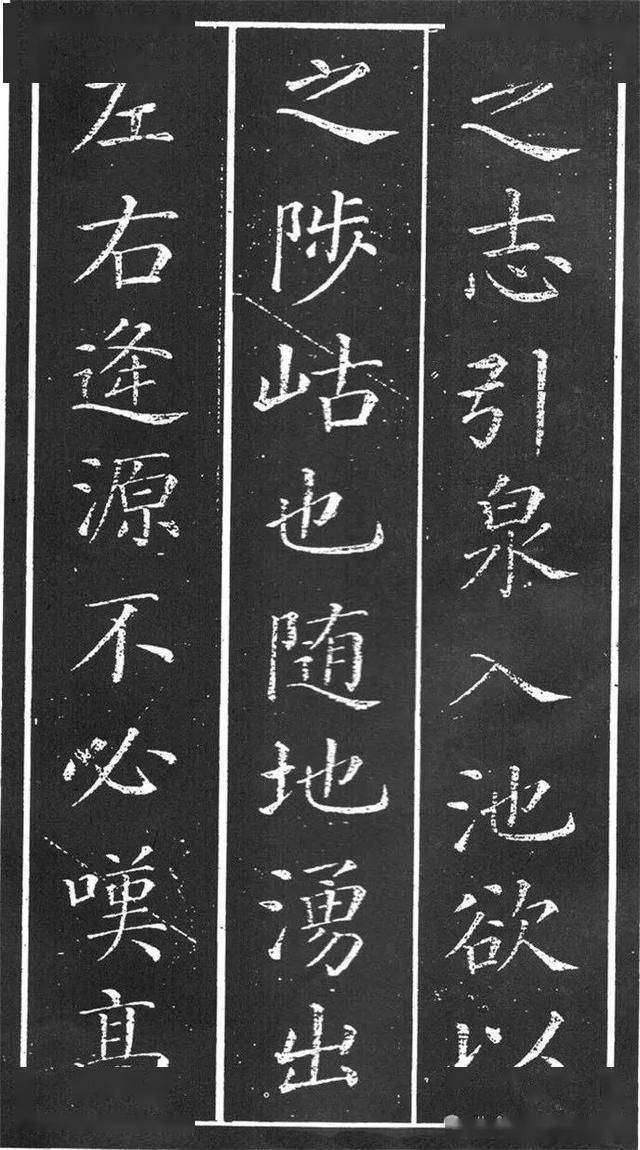 之志引泉入池欲以
之陟岵也随地湧出
左右逢源不必嘆